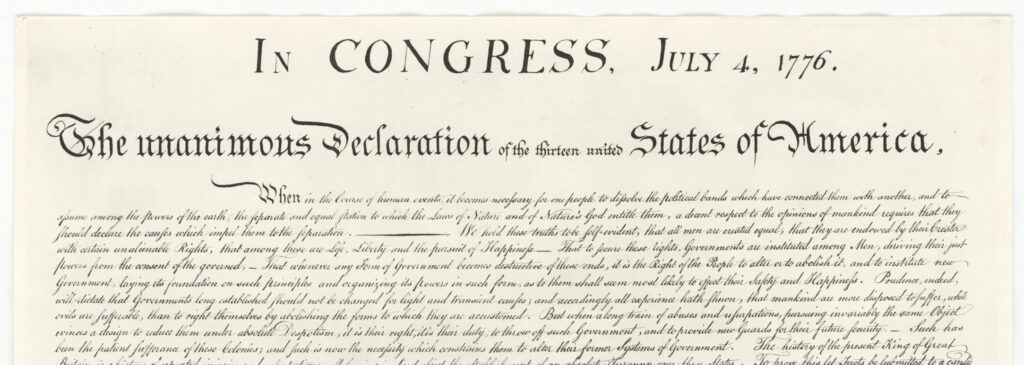 IN CONGRESS, JULY 4, 1776.
The unanimous Declaration of the thirteen united States of America,
When in the Course of human events, it becomes necessary for one people to dissolve the political bands which have connected them with another, and to
assume among the powers of the earth, the separate and equal station to which the Laws of Nature and of Nature's God entitle them, a decent respect to the opinions of mankind requires that they
should declare the causes which impel them to the separation. ——— We hold these truths to be self-evident, that all men are created equal, that they are endowed by their Creator
with certain unalienable Rights, that among these are Life, Liberty and the pursuit of Happiness — That to secure these rights, Governments are instituted among Men, deriving their just
powers from the consent of the governed, — That whenever any Form of Government becomes destructive of these ends, it is the Right of the People to alter or to abolish it, and to institute new
Government, laying its foundation on such principles and organizing its powers in such form, as to them shall seem most likely to effect their Safety and Happiness. Prudence, indeed,
will dictate that Governments long established should not be changed for light and transient causes; and accordingly all experience hath shewn, that mankind are more disposed to suffer, while
evils are sufferable, than to right themselves by abolishing the forms to which they are accustomed. But when a long train of abuses and usurpations, pursuing invariably the same Object
evinces a design to reduce them under absolute Despotism, it is their right, it is their duty, to throw off such Government, and to provide new Guards for their future security. — Such has
been the patient sufferance of these Colonies; and such is now the necessity which constrains them to alter their former Systems of Government. The history of the present King of Great